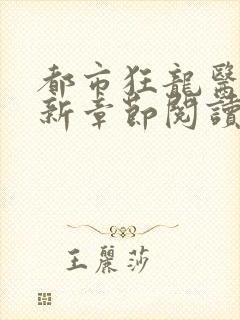 都市狂龍醫
新章節閱讀
王麗莎